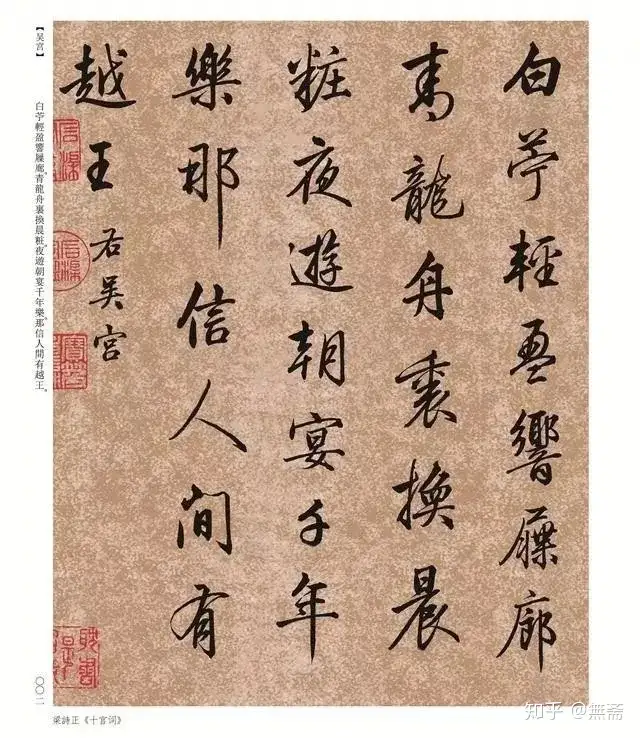 白苧輕盈響屧廊
青龍舟裏換晨
粧夜遊朝宴千年
樂那信人間有
越王
右吴宫
【吴宫】
白苧輕盈響屧廊。青龍舟裏換晨粧。夜遊朝宴千年樂。那信人間有越王。
〇〇二
梁詩正《十宫词》
知乎 @無斋